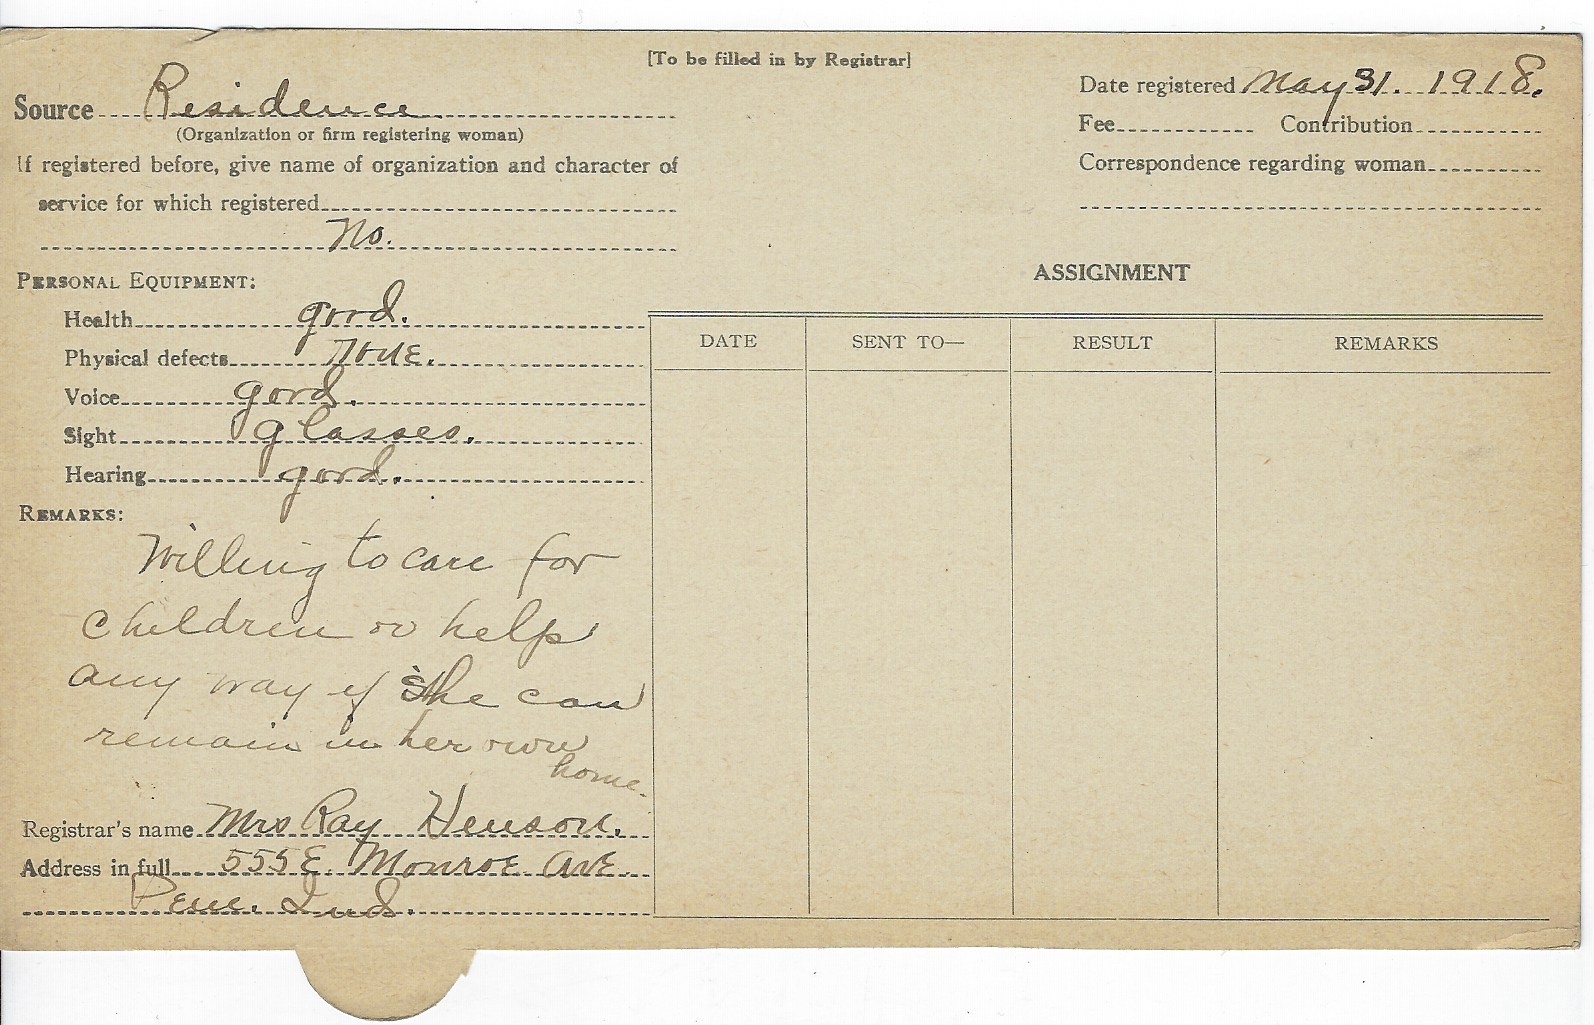 [To be filled in by Registrar]
Source Residence.
(Organization or firm registering woman)
If registered before, give name of organization and character of
service for which registered
No.
Date registered May 31. 1918.
Fee Contribution
Correspondence regarding woman
PERSONAL EQUIPMENT:
Health good.
Physical defects none.
Voice good.
Sight glasses.
Hearing good.
REMARKS:
Willing to care for
children or help
any way if she can
remain in her own
home.
Registrar's name Mrs Ray Henson.
Address in full 555 E. Monroe Ave.
Peru. Ind.
ASSIGNMENT
DATE SENT TO— RESULT REMARKS